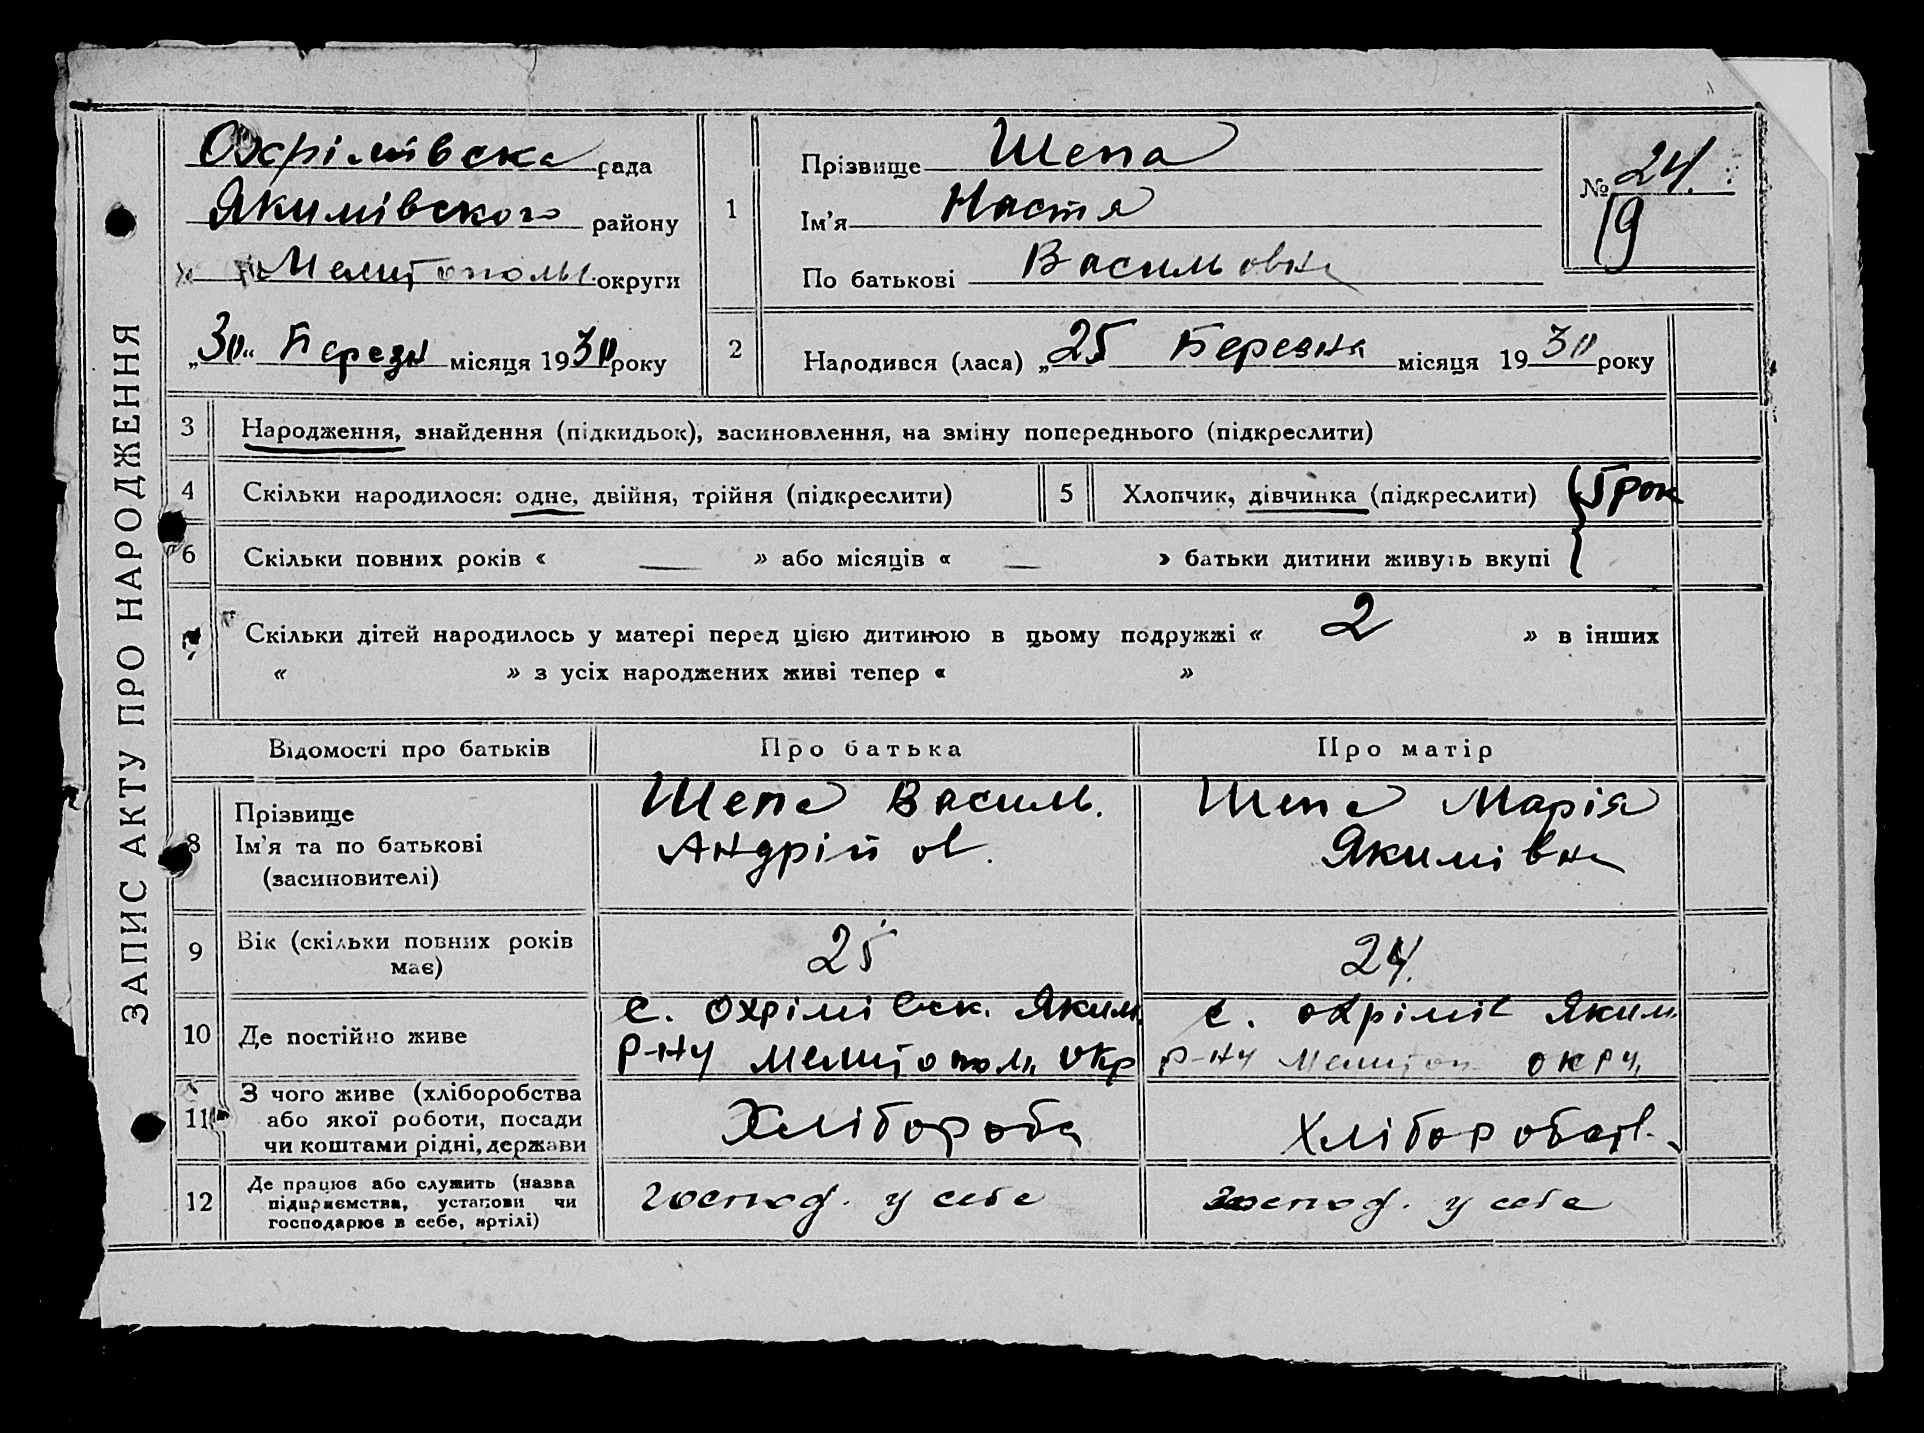 ЗАПИС АКТУ ПРО НАРОДЖЕННЯ
Охрімівска рада
Якимівского району
Мелитополь округи
„30“ Березн місяця 1930 року
1
Прізвище Шепа
Ім'я Настя
По батькові Васильовна
№ 24.
19
2
Народився (лася) „25 Березня місяця 1930 року
3 Народження, знайдення (підкидьок), засиновлення, на зміну попереднього (підкреслити)
4 Скільки народилося: одне, двійня, трійня (підкреслити)
5 Хлопчик, дівчинка (підкреслити)
5 рок
6 Скільки повних років « — » або місяців « — » батьки дитини живуть вкупі
7 Скільки дітей народилось у матері перед цією дитиною в цьому подружжі « 2 » в інших
« » з усіх народжених живі тепер « »
Відомості про батьків Про батька Про матір
8 Прізвище
Ім'я та по батькові
(засиновителі)
Шепа Василь.
Андрійов.
Шепа Марія
Якимівна
9 Вік (скільки повних років
має)
25
24.
10 Де постійно живе
с. Охрімівск. Яким.
р-ну Мелитопол. окр
с. Охрімів Яким
р-ну Мелитоп окру.
11 З чого живе (хліборобства
або якої роботи, посади
чи коштами рідні, держави
Хлібороба
Хлібороботв.
12 Де працює або служить (назва
підприємства, установи чи
господарює в себе, артілі)
господ. у себе
господ. у себе